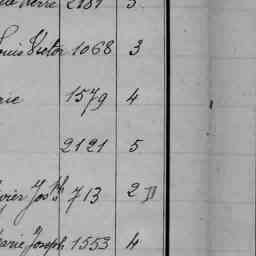 2181 5
Louis Victor 1068 3
rie 1579 4
2121 5
vier Josph 713 2 D
Marie Joseph 1553 4